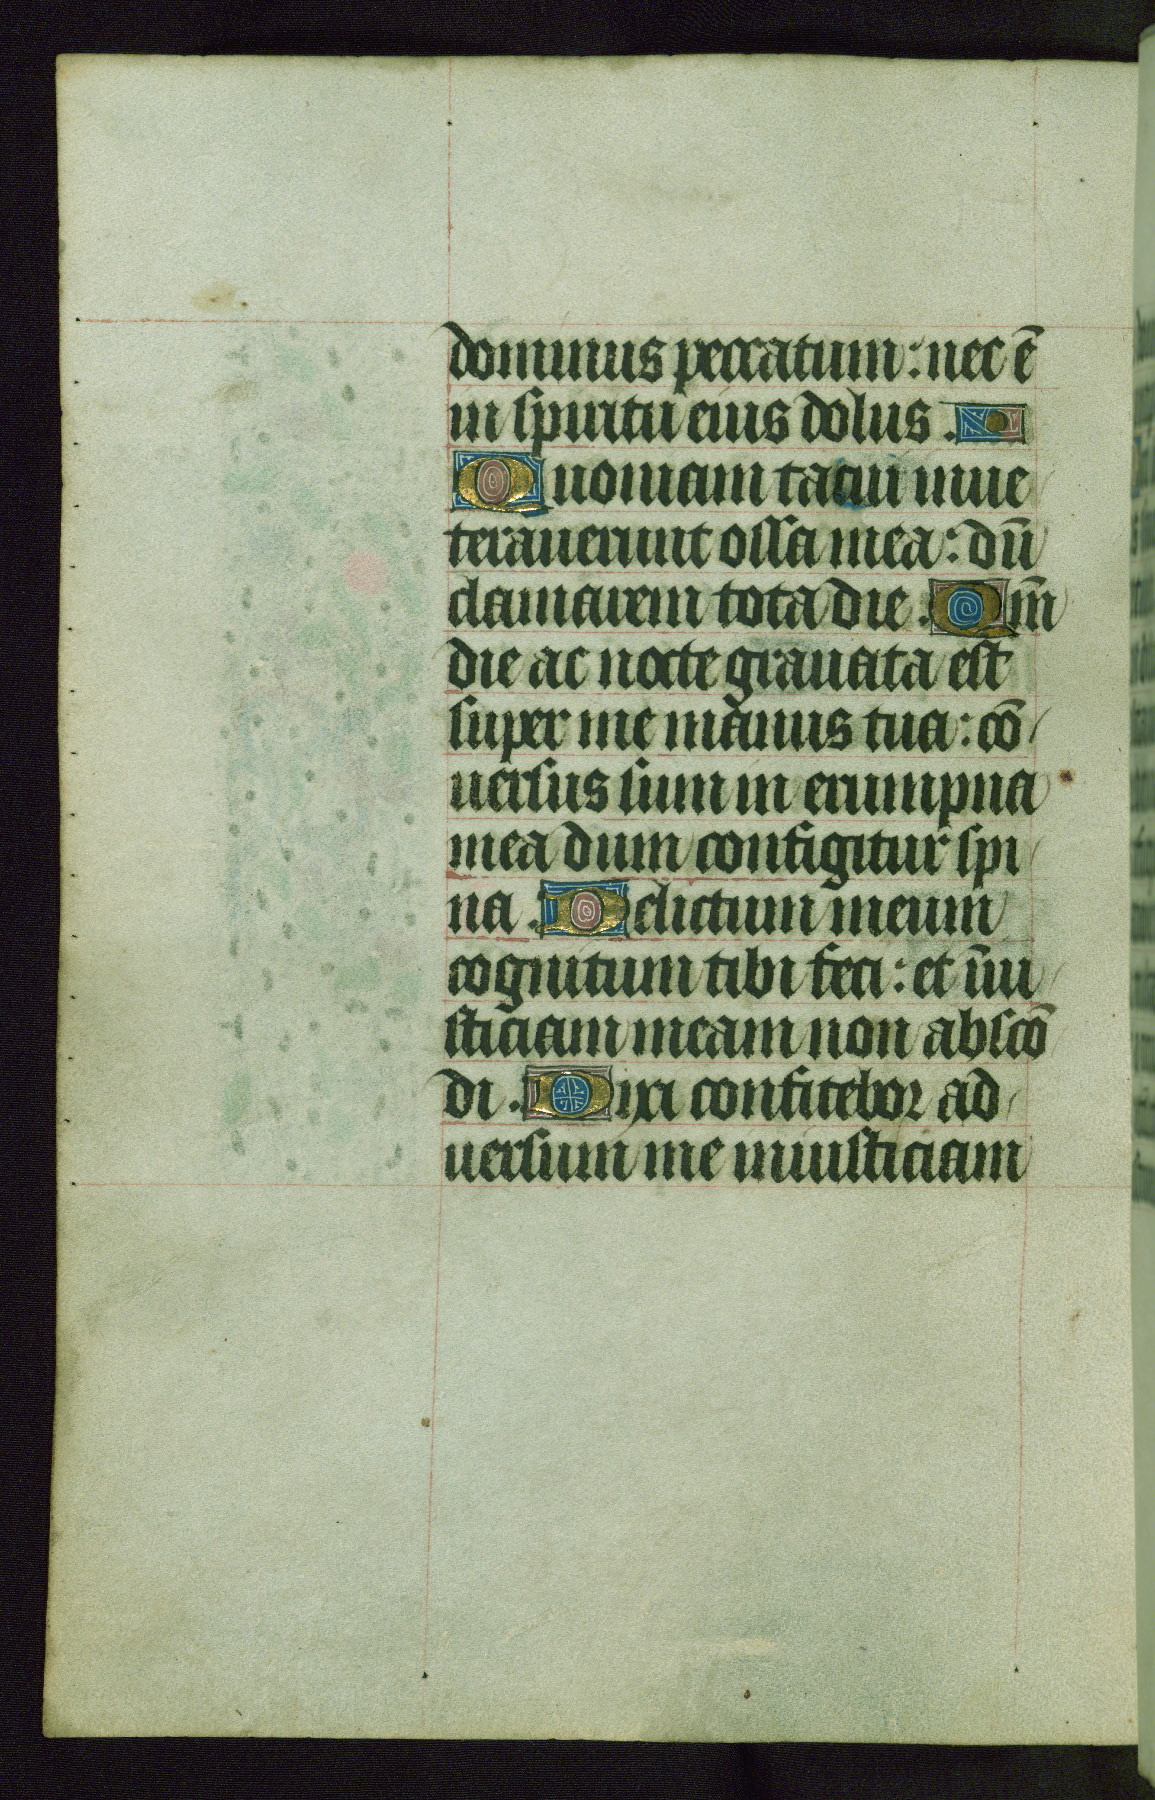 dominus peccatum: nec ē
in spiritu eius dolus.
Quoniam tacui inue
terauerunt ossa mea: dū
clamarem tota die. Qm̄
die ac nocte grauata est
super me manus tua: cō
uersus sum in erumpna
mea dum configitur spi
na. Delictum meum
cognitum tibi feci: et īiu
sticiam meam non abscō
di. Dixi confitebor ad
uersum me iniusticiam